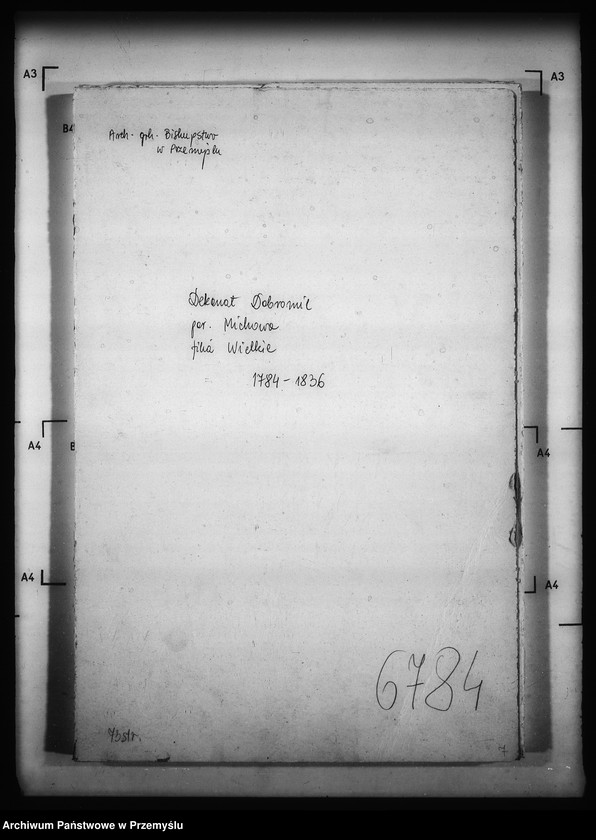 A3
A3
B4
Arch. grk. Biskupstwo
w Przemyślu
Dekanat Dobromil
par. Michowa
filia Wielkie
1784-1836
A4
B
A4
A4
A4
6784
str.
7
Archiwum Państwowe w Przemyślu